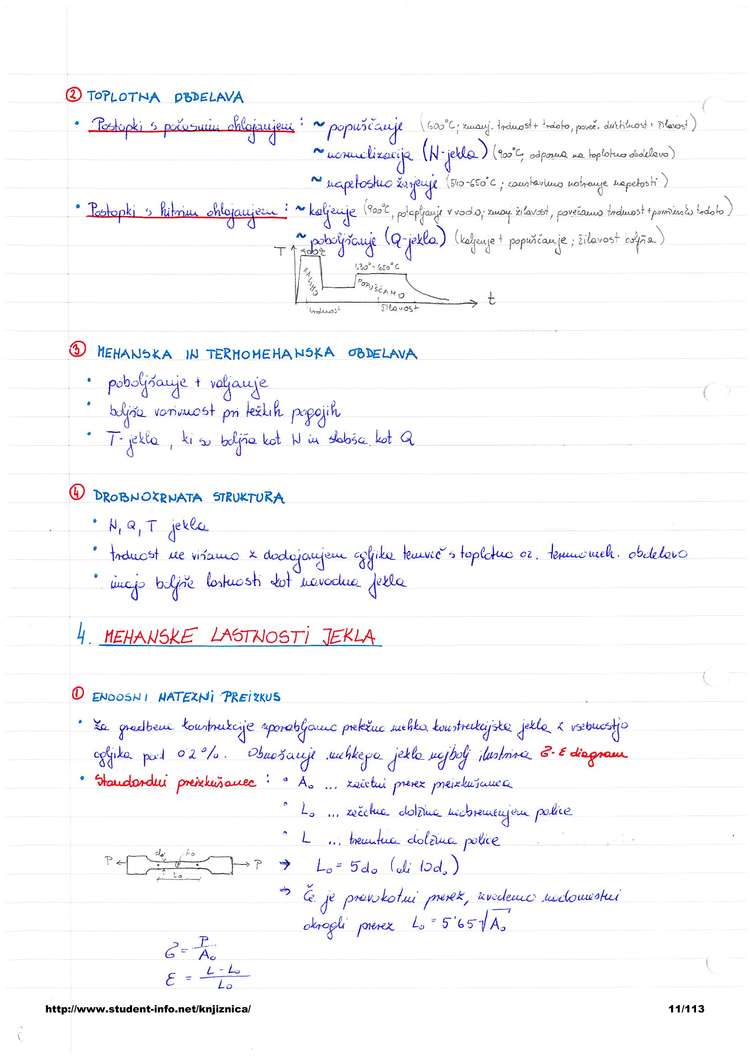 ② TOPLOTNA OBDELAVA
• Postopki s počasnim ohlajanjem : ~ popuščanje (600°C; zmanj. trdnost + trdoto, poveč. duktilnost + žilavost)
~ normalizacija (N-jekla) (900°C, odporna na toplotno obdelavo)
~ napetostno žarjenje (510-650°C; zaustavimo notranje napetosti)
• Postopki s hitrim ohlajanjem : ~ kaljenje (900°C, potapljanje v vodo; zmanj. žilavost, povečamo trdnost + trdoto)
~ poboljšanje (Q-jekla) (kaljenje + popuščanje; žilavost)
T 900°C
530°-650°C
KALIMO POPUŠČAMO
t
trdnost žilavost
③ MEHANSKA IN TERMOMEHANSKA OBDELAVA
• poboljšanje + valjanje
• boljša varivnost pri težkih pogojih
• T-jekla, ki so boljša kot N in slabša kot Q
④ DROBNOZRNATA STRUKTURA
• N, Q, T jekla
• trdnost ne višamo z dodajanjem ogljika temveč s toplotno oz. termomeh. obdelavo
• imajo boljše lastnosti kot navadna jekla
4. MEHANSKE LASTNOSTI JEKLA
① ENOOSNI NATEZNI PREIZKUS
• Za gradbene konstrukcije uporabljamo pretežno mehka konstrukcijska jekla z vsebnostjo
ogljika pod 0.2%. Obnašanje mehkega jekla najbolj ilustrira σ-ε diagram
• Standardni preizkušanec : • A₀ ... začetni prerez preizkušanca
• L₀ ... začetna dolžina neobremenjene palice
• L ... trenutna dolžina palice
P d₀ A₀ P
L₀
→ L₀ = 5d₀ (ali 10d₀)
→ Če je pravokotni prerez, uvedemo nadomestni
okrogli prerez L₀ = 5'65√A₀
σ = P/A₀
ε = L-L₀/L₀
http://www.student-info.net/knjiznica/ 11/113